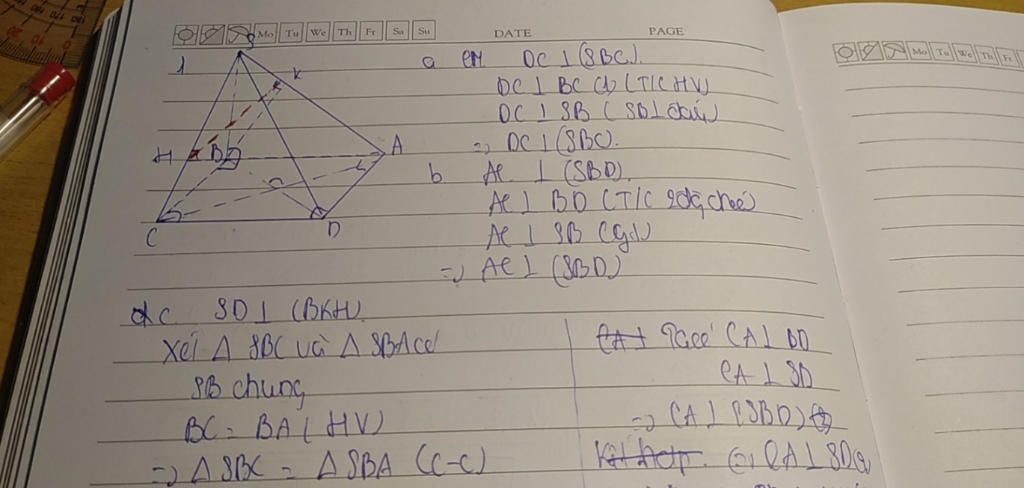 Mo Tu We Th Fr Sa Su
DATE PAGE
1
S
K
H
B
A
C
D
a CM DC ⊥ (SBC).
DC ⊥ BC (T/C HV)
DC ⊥ SB (SB ⊥ đáy)
=> DC ⊥ (SBC).
b AC ⊥ (SBD).
AC ⊥ BD (T/C 2 đg chéo)
AC ⊥ SB (gt)
=> AC ⊥ (SBD)
c SD ⊥ (BKH).
Xét Δ SBC và Δ SBA có
SB chung
BC = BA (HV)
=> Δ SBC = Δ SBA (C-C)
Ta có CA ⊥ BD
CA ⊥ SD
=> CA ⊥ (SBD)
Kết hợp. CA ⊥ SD